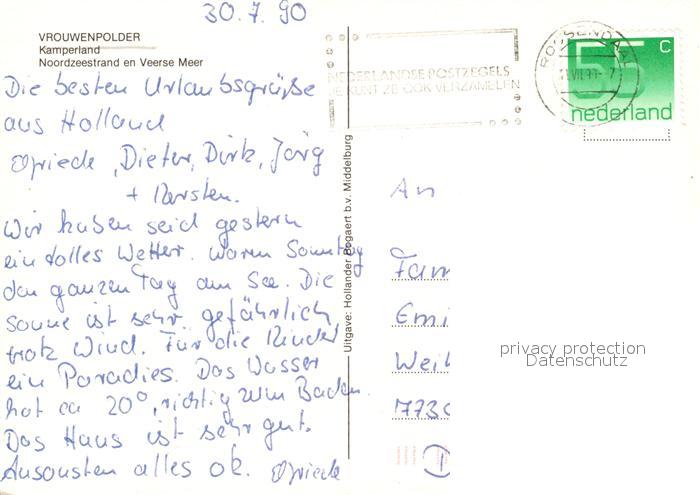 30.7.90
VROUWENPOLDER
Kamperland
Noordzeestrand en Veerse Meer
Die besten Urlaubsgrüße
aus Holland
Friede, Dieter, Dirk, Jörg
+ Kersten.
Wir haben seid gestern
ein tolles Wetter. Waren Sonntag
den ganzen Tag am See. Die
Sonne ist sehr gefährlich
trotz Wind. Für die Kinder
ein Paradies. Das Wasser
hat ca 20°, richtig zum Baden.
Das Haus ist sehr gut.
Ansonsten alles ok. Friede
Uitgave: Hollander Bogaert b.v. Middelburg
NEDERLANDSE POSTZEGELS
JE KUNT ZE OOK VERZAMELEN
ROOSENDAAL
55 C
nederland
An
Fam
Emi
Weil
773
privacy protection
Datenschutz